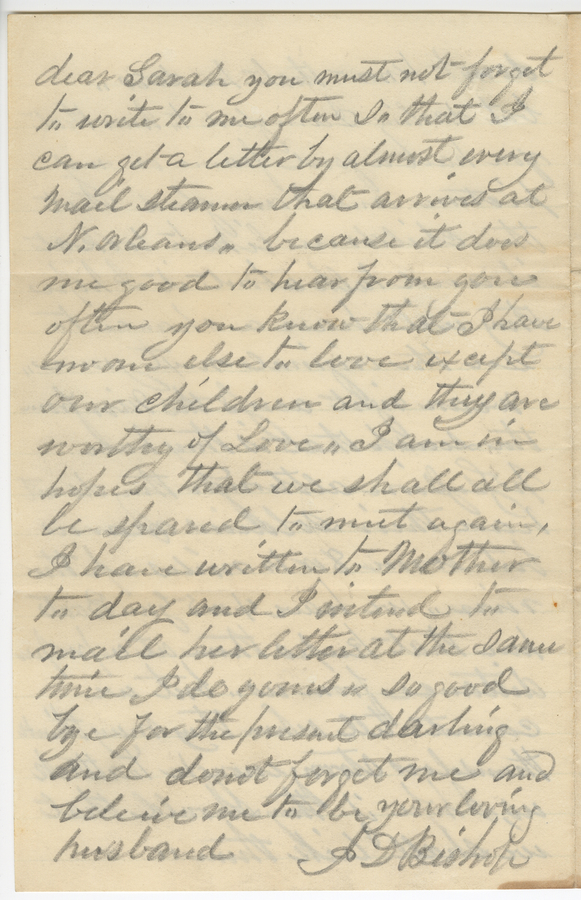 dear Sarah you must not forget
to write to me often So that I
can get a letter by almost every
Mail Steamer that arrives at
N. Orleans,, because it does
me good to hear from you
often you know that I have
noone else to love except
our children and they are
worthy of Love,, I am in
hopes that we shall all
be spared to meet again,
I have written to Mother
to day and I intend to
mail her letter at the Same
time I do yours,, so good
bye for the present darling
and don't forget me and
beleive me to be your loving
husband J D Bishop